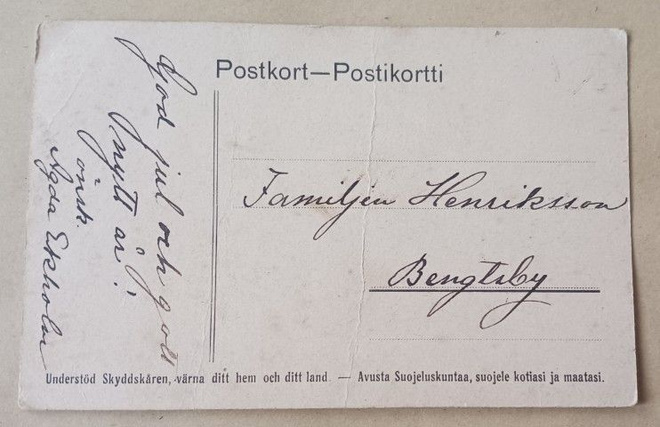 Postkort—Postikortti
God jul och gott
nytt år!
önsk.
Agda Ekholm
Familjen Henriksson
Bengtsby
Understöd Skyddskåren, värna ditt hem och ditt land. — Avusta Suojeluskuntaa, suojele kotiasi ja maatasi.